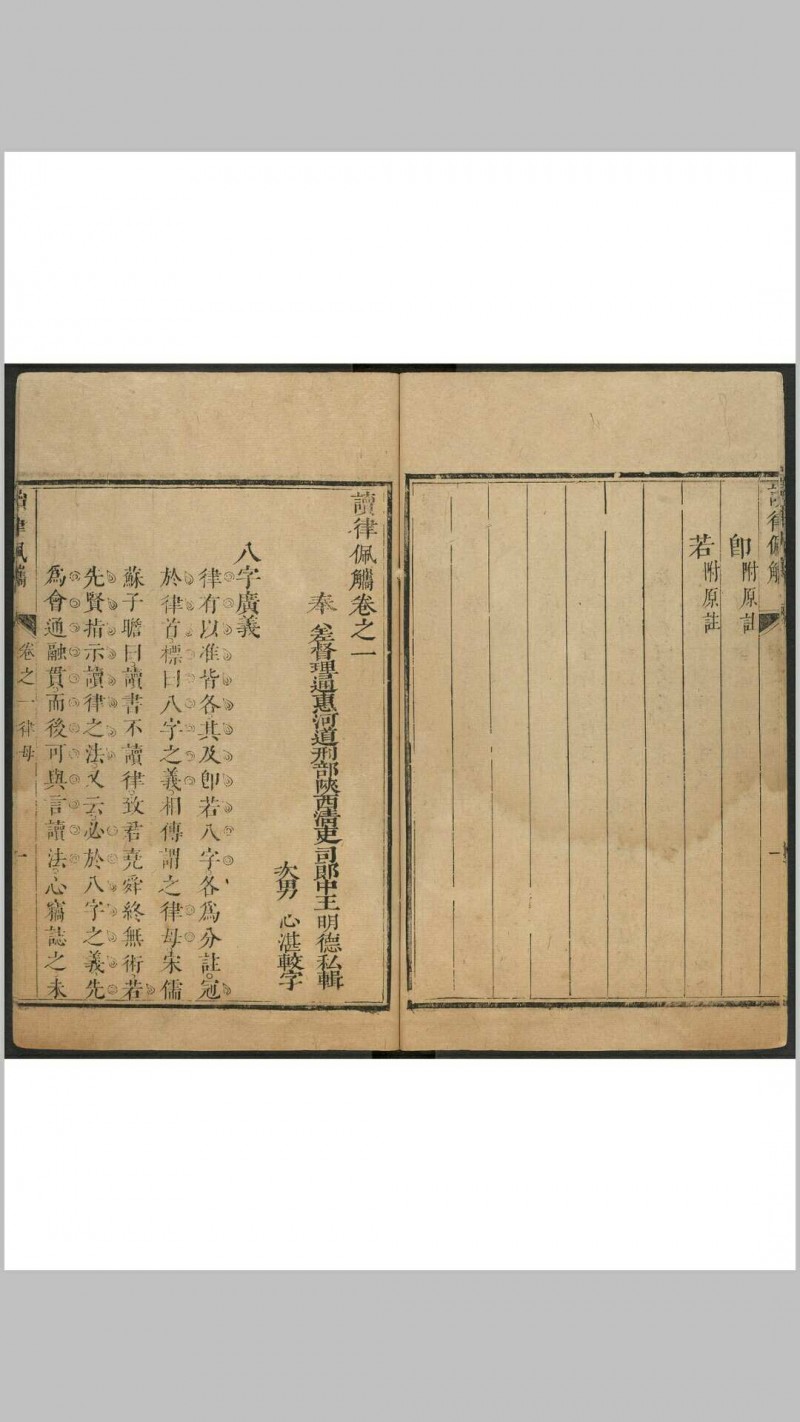 讀律佩觿
即附原註
若附原註
一
讀律佩觿卷之一
奉 差督理通惠河道刑部陝西清吏司郎中王明德私輯
次男 心湛較字
八字廣義
律有以准皆各其及即若八字各為分註冠
於律首標曰八字之義相傳謂之律母宋儒
蘇子瞻曰讀書不讀律致君堯舜終無術若
先賢指示讀律之法又云必於八字之義先
為會通融貫而後可與言讀法心竊誌之未
讀律佩觿 卷之一 律母 一